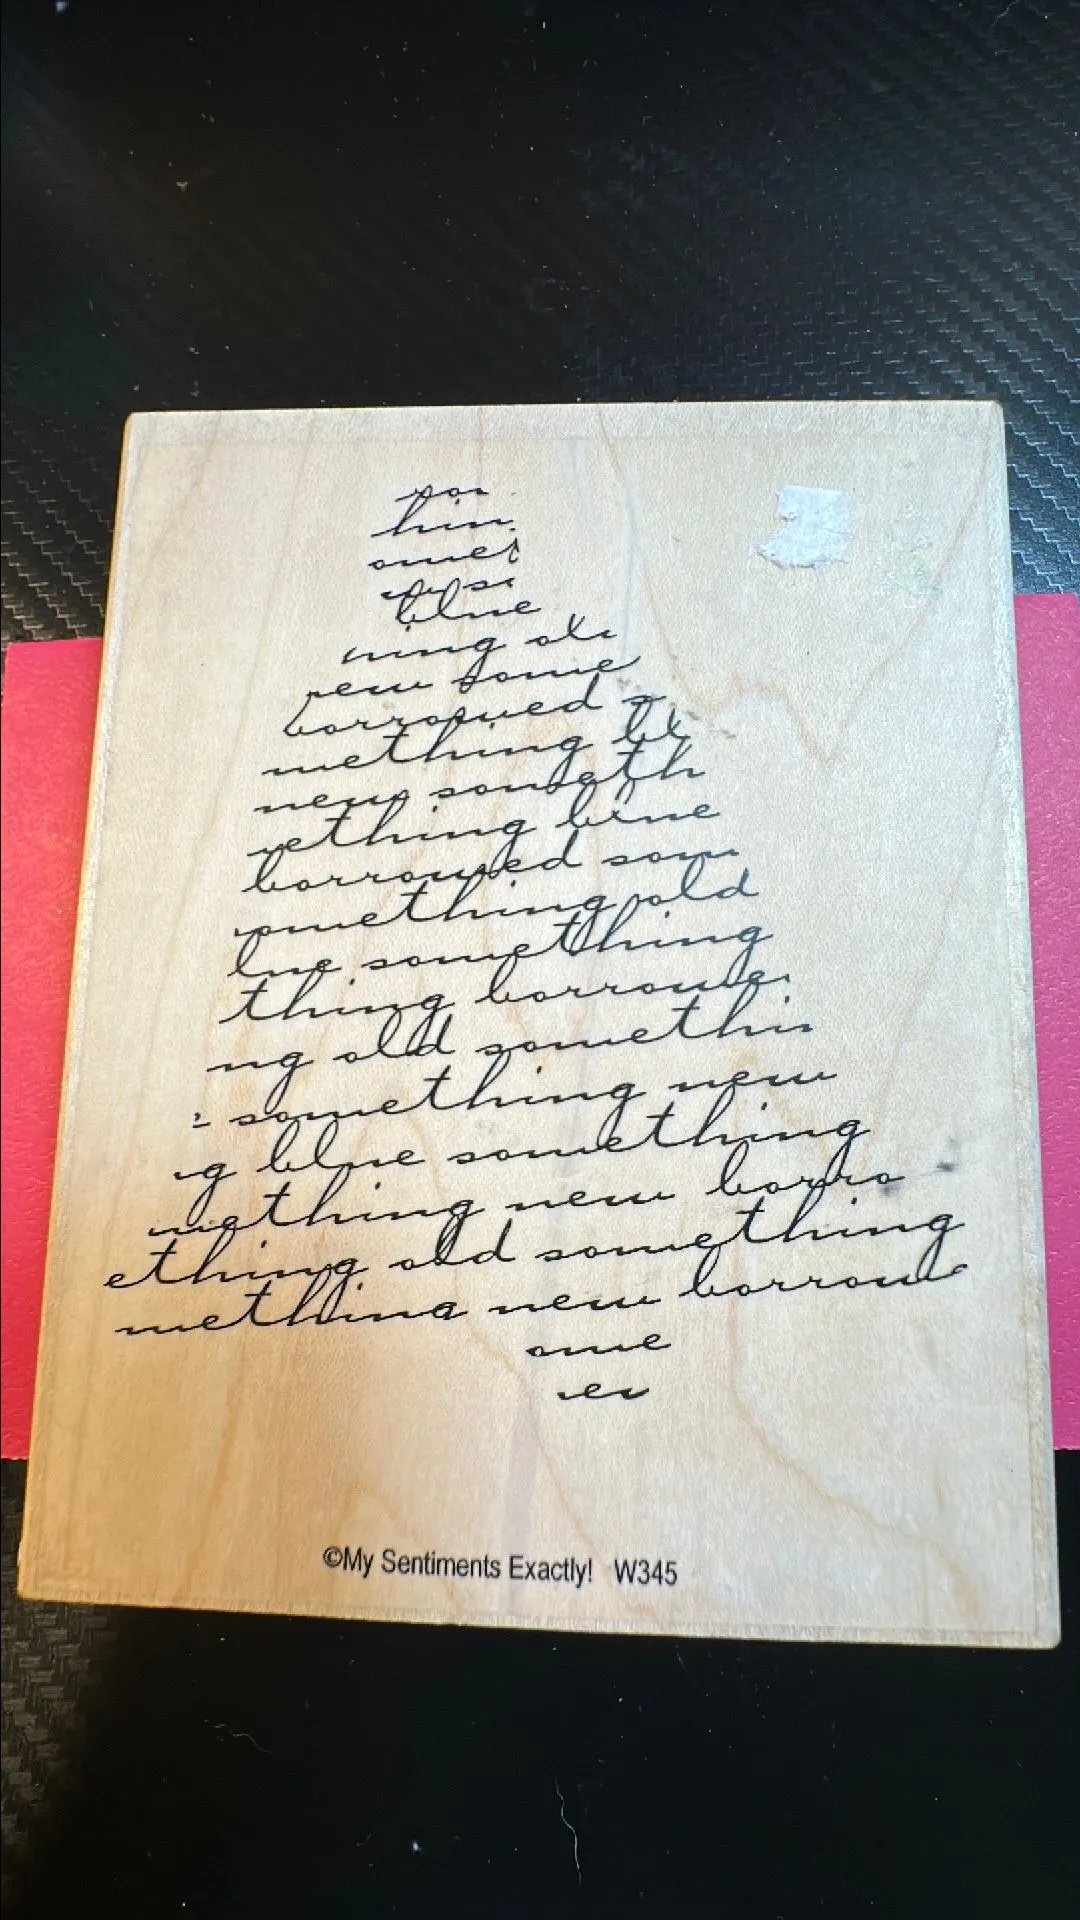 som
hin
omet
w so
blue
ning old
new some
borrowed s
mething bl
new someth
nething blue
borrowed som
omething old
lue something
thing borrowe
ng old somethin
something new
ng blue something
mething new borro
ething old something
mething new borrowe
ome
ew
©My Sentiments Exactly! W345